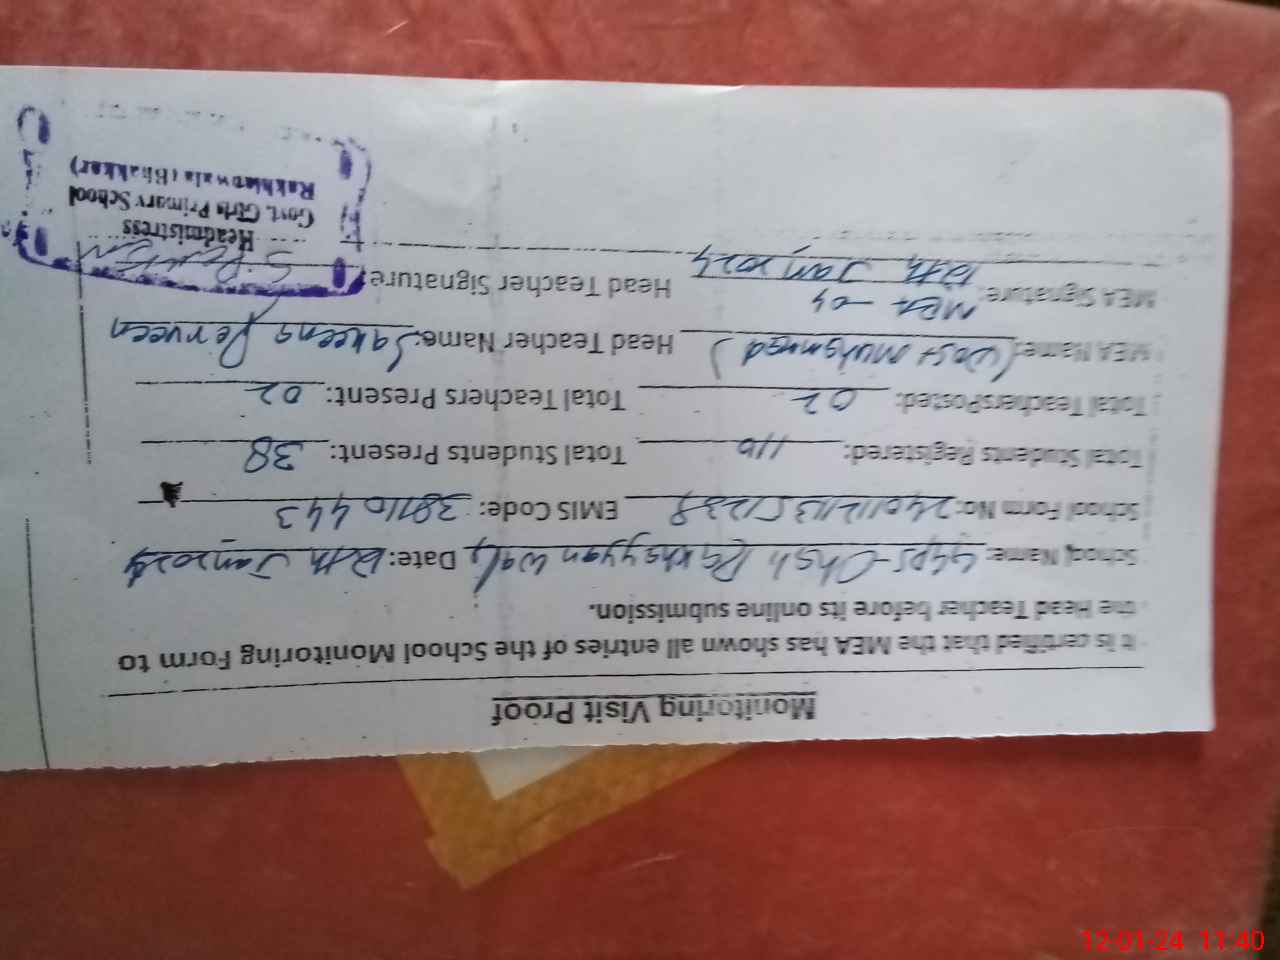 Monitoring Visit Proof
It is certified that the MEA has shown all entries of the School Monitoring Form to
the Head Teacher before its online submission.
School Name: GGPS- Chah Rakhayyan Wala Date: 12th Jan 2024
School Form No: EMIS Code: 38110443
Total Students Registered: 110 Total Students Present: 38
Total Teachers Posted: 02 Total Teachers Present: 02
MEA Name: Muhammad Head Teacher Name: Sakeena Perveen
MEA - 04
MEA Signature: 12th Jan 2024 Head Teacher Signature: S. Perveen
Headmistress
Govt. Girls Primary School
Rakhianwala (Bhakkar)
12-01-24 11:40